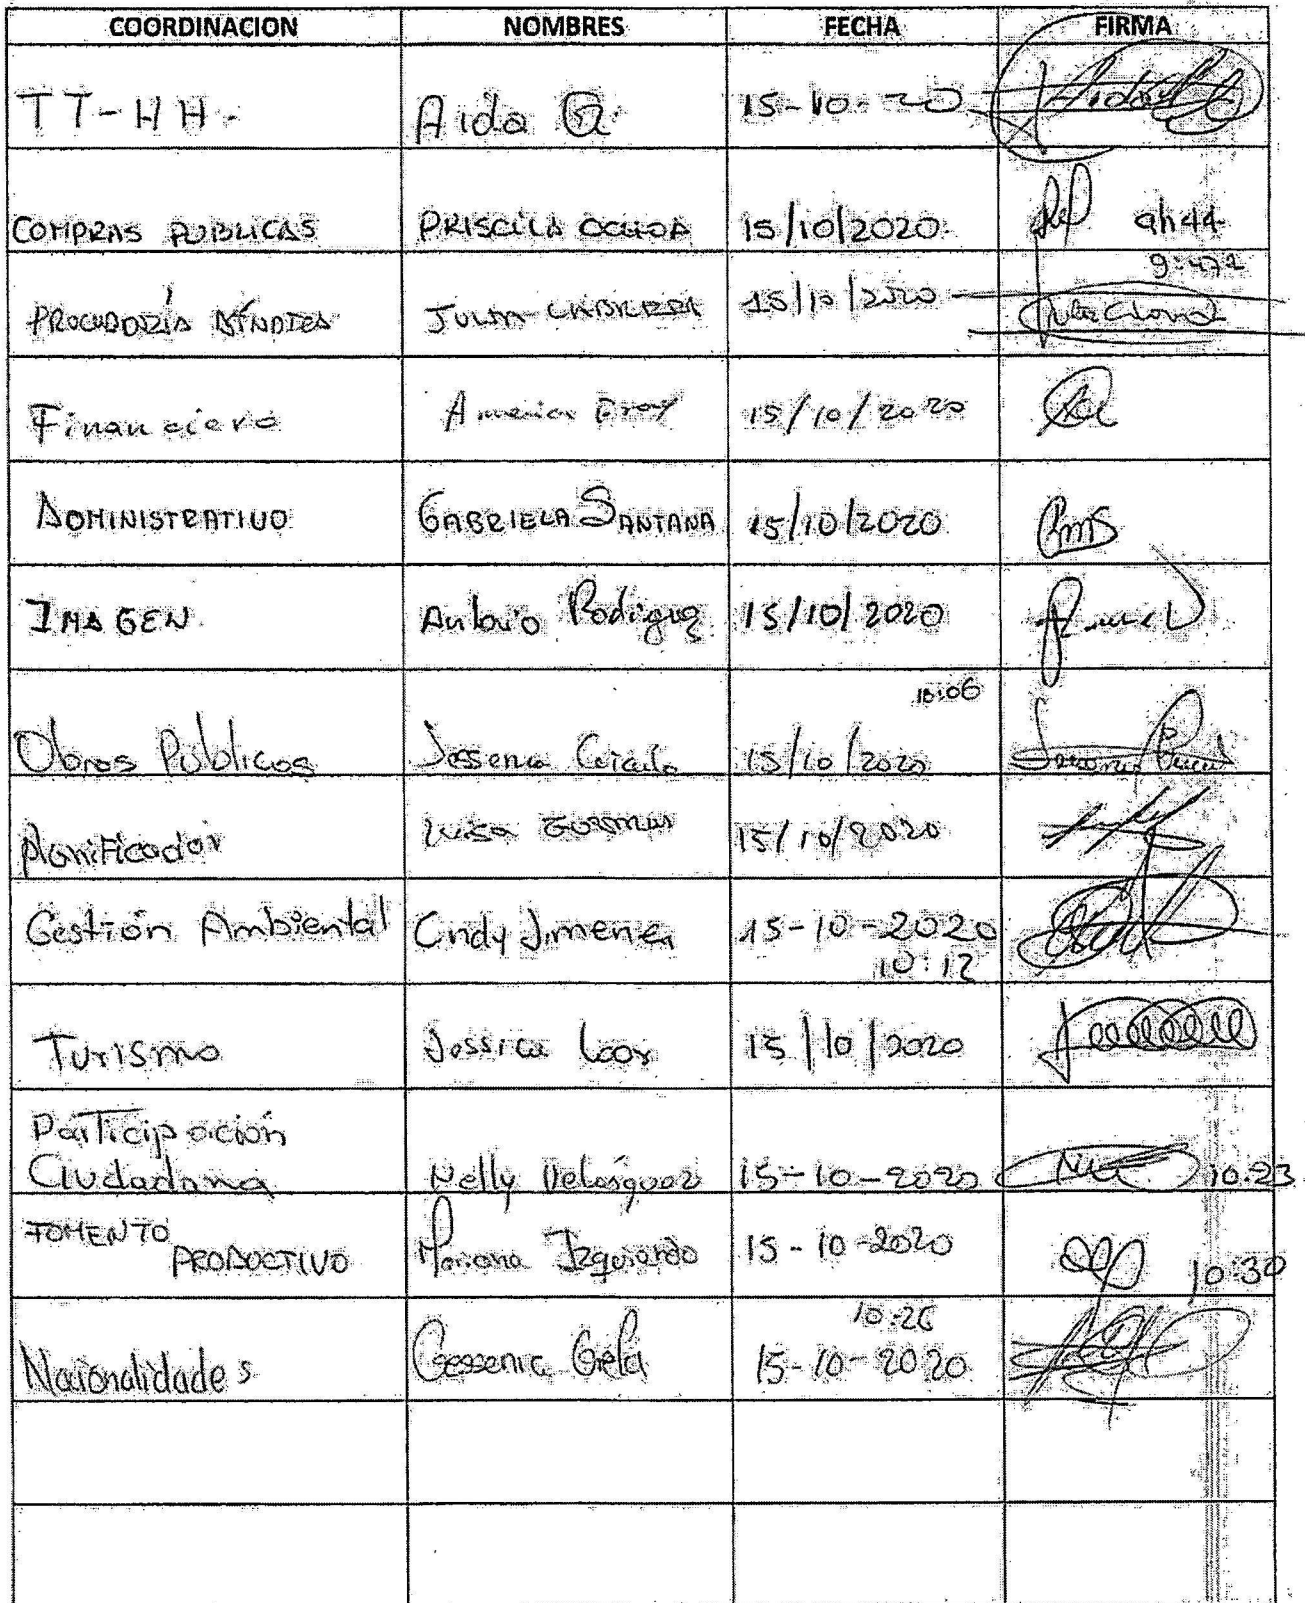 COORDINACION NOMBRES FECHA FIRMA
TT-HH. Aida Q. 15-10-20
COMPRAS PUBLICAS PRISCILA OCHOA 15/10/2020 9h44
9:47
PROCURADORÍA SÍNDICA JULIA CABRERA 15/10/2020
Financiero America 15/10/2020
ADMINISTRATIVO GABRIELA SANTANA 15/10/2020
IMAGEN Antonio Rodriguez 15/10/2020
10:06
Obras Públicas Jessenia 15/10/2020
Planificador Luisa 15/10/2020
Gestión Ambiental Cindy Jimenez 15-10-2020
10:12
Turismo Jessica Loor 15/10/2020
Participación
Ciudadana Nelly Velásquez 15-10-2020 10:23
FOMENTO
PRODUCTIVO Mariana Izquierdo 15-10-2020 10:30
10:26
Nacionalidades 15-10-2020